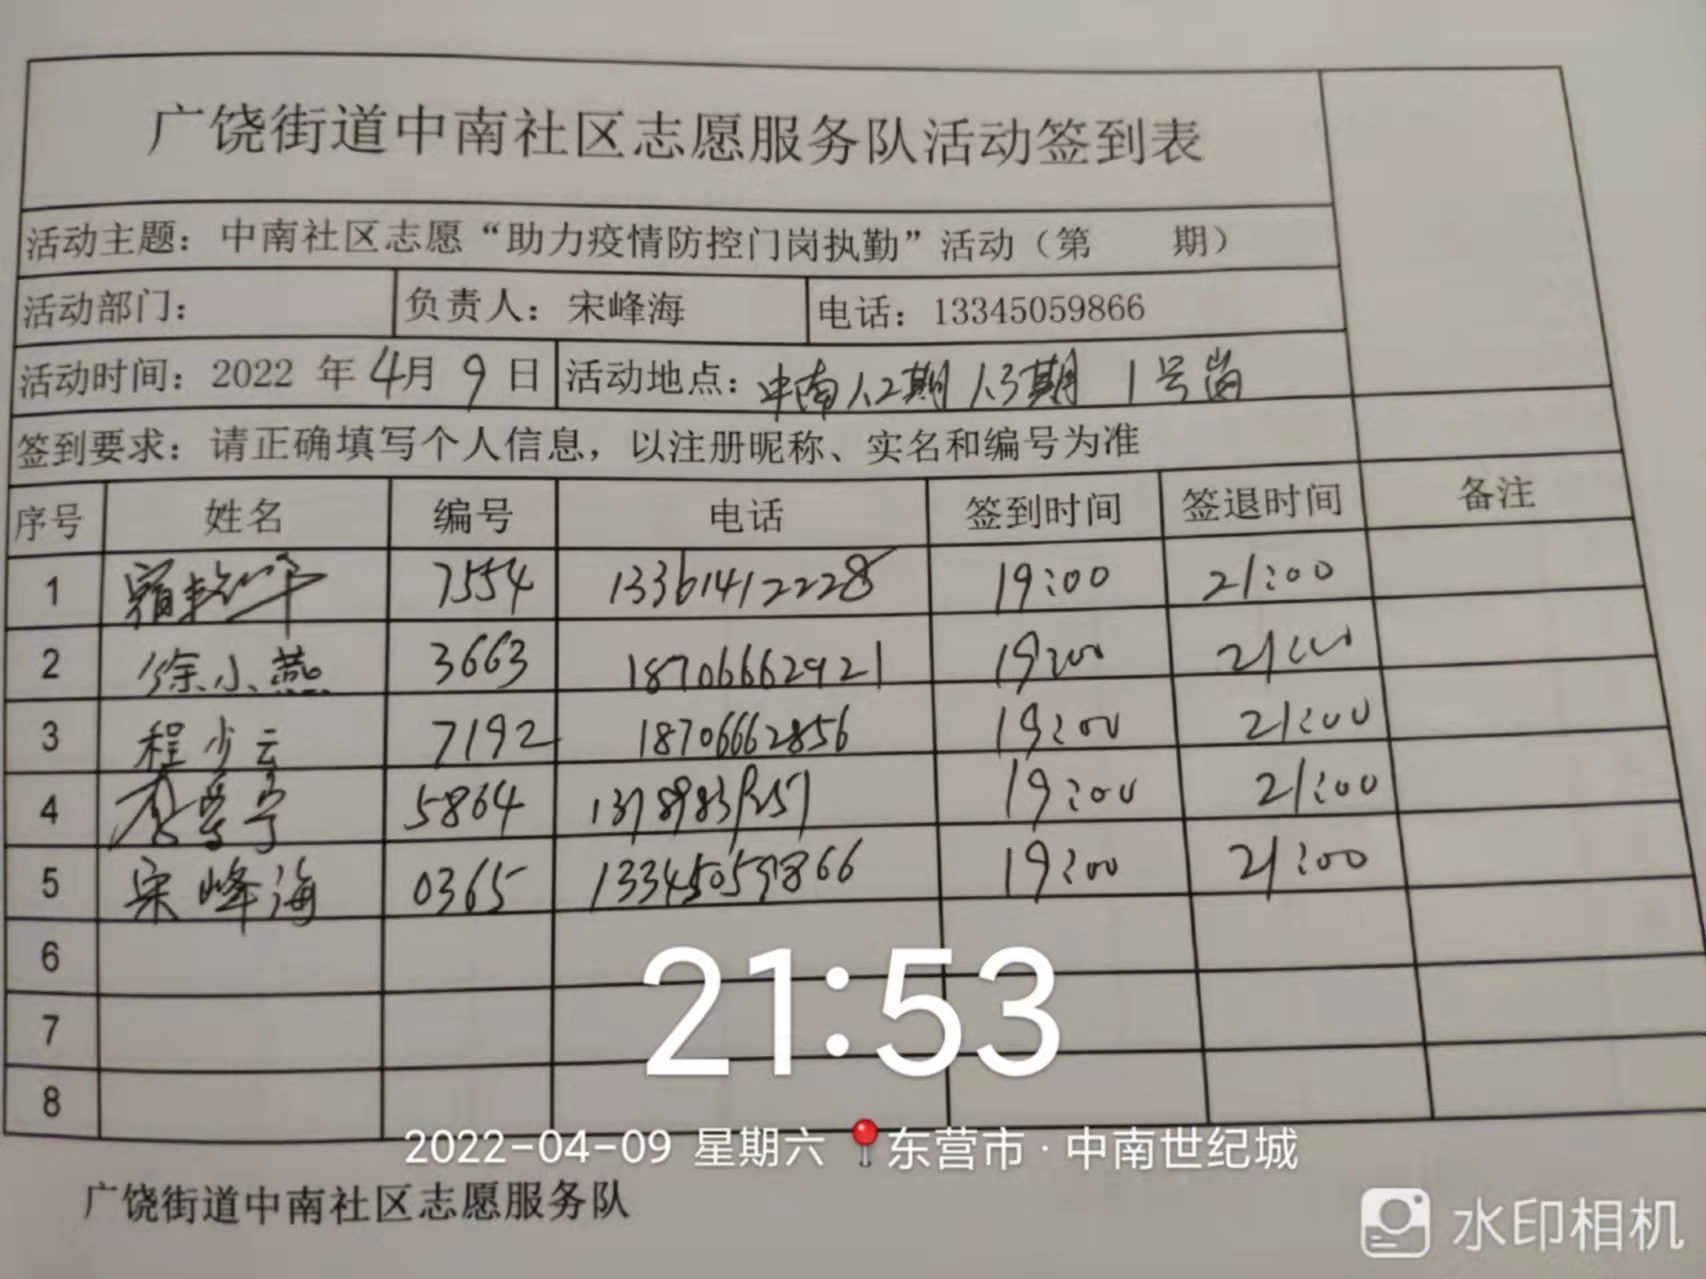 广饶街道中南社区志愿服务队活动签到表
活动主题：中南社区志愿“助力疫情防控门岗执勤”活动（第 期）
活动部门： 负责人：宋峰海 电话：13345059866
活动时间：2022 年 4月 9 日 活动地点：中南1.2期 1.3期 1号岗
签到要求：请正确填写个人信息，以注册昵称、实名和编号为准
序号 姓名 编号 电话 签到时间 签退时间 备注
1 7554 13361412228 19:00 21:00
2 徐小燕 3663 18706662921 19:00 21:00
3 程少云 7192 18706662856 19:00 21:00
4 5864 19:00 21:00
5 宋峰海 0365 13345059866 19:00 21:00
6
7
8
21:53
2022-04-09 星期六 东营市·中南世纪城
广饶街道中南社区志愿服务队
水印相机